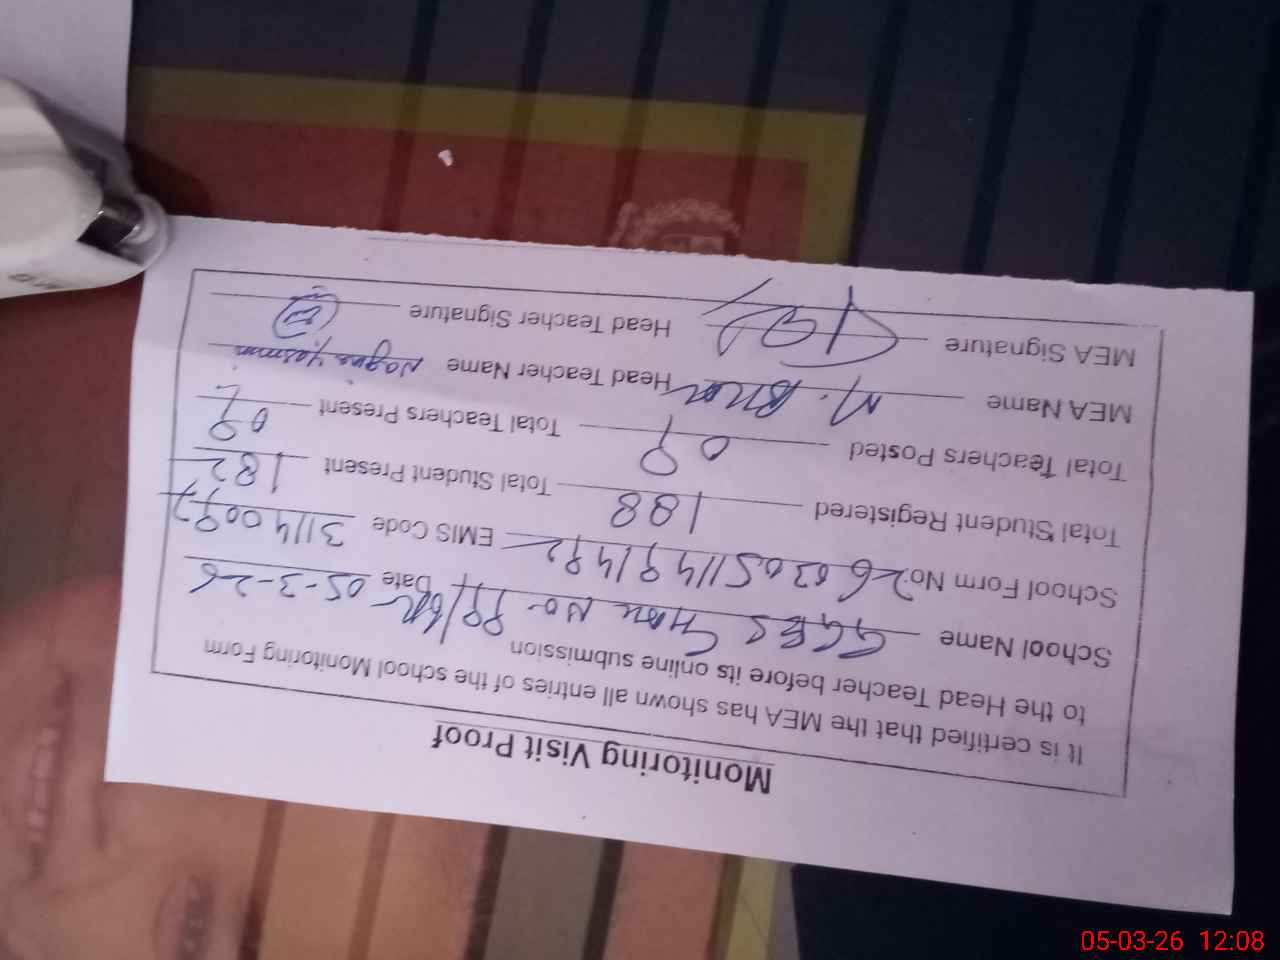 Monitoring Visit Proof
It is certified that the MEA has shown all entries of the school Monitoring Form
to the Head Teacher before its online submission
School Name GGES Chak No- 99/ Date 05-3-26
School Form No. EMIS Code 31140097
Total Student Registered 188 Total Student Present 182
Total Teachers Posted 09 Total Teachers Present 09
MEA Name M. Head Teacher Name Nagina Yasmin
MEA Signature Head Teacher Signature
05-03-26 12:08